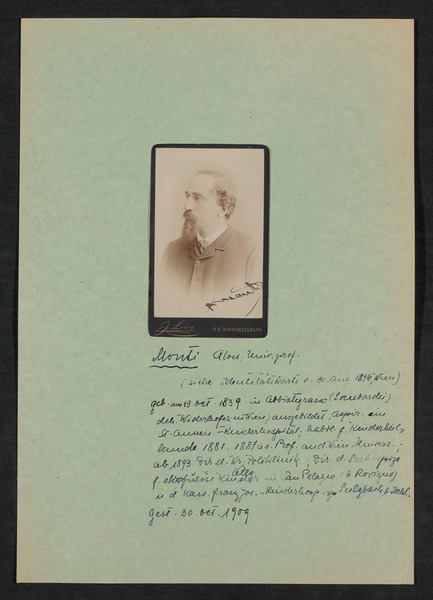 J. Löwy
K.K. HOFPHOTOGRAPH
Monti Alois Univ. prof.
(siehe Identitätskarte v. 30. Aug. 1894, Wien)
geb. am 13 oct. 1839 in Abbiategrasso (Lombardei)
(bei Widerhofer in Wien) ausgebildet, in
St. Annen-Kinderhospital, habil. f. Kinderheil-
kunde 1881. 1887 ao. Prof. and. Wien. Univers.;
ab 1893 Dir. d. W. Poliklinik, Dir. d. Seehospize
f. skrofulöse Kinder in San Pelagio (b Rovigno)
u. d Kais. Franz Jos.-Kinderhosp. zu Sulzbach b Ischl.
Gest. 30. oct. 1909